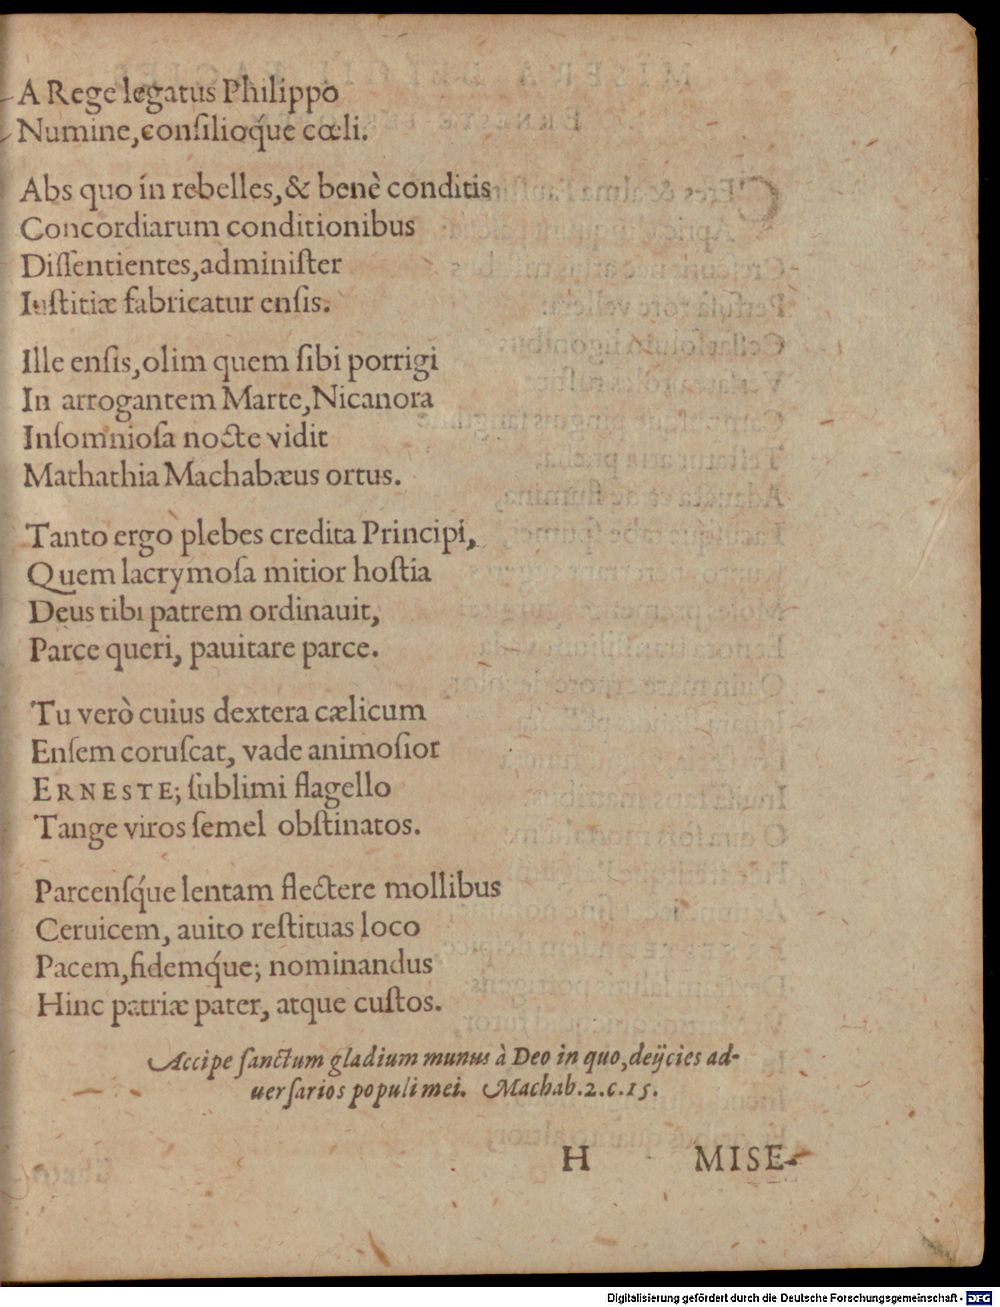 A Rege legatus Philippo
Numine, consilioq́ue cœli.
Abs quo in rebelles, & benè conditis
Concordiarum conditionibus
Dissentientes, administer
Iustitiæ fabricatur ensis.
Ille ensis, olim quem sibi porrigi
In arrogantem Marte, Nicanora
Insomniosa nocte vidit
Mathathia Machabæus ortus.
Tanto ergo plebes credita Principi,
Quem lacrymosa mitior hostia
Deus tibi patrem ordinauit,
Parce queri, pauitare parce.
Tu verò cuius dextera cælicum
Ensem coruscat, vade animosior
ERNESTE; sublimi flagello
Tange viros semel obstinatos.
Parcensq́ue lentam flectere mollibus
Ceruicem, auito restituas loco
Pacem, fidemq́ue; nominandus
Hinc patriæ pater, atque custos.
Accipe sanctum gladium munus à Deo in quo, deijcies ad-
uersarios populi mei. Machab. 2. c. 15.
H MISE-
Digitalisierung gefördert durch die Deutsche Forschungsgemeinschaft - DFG